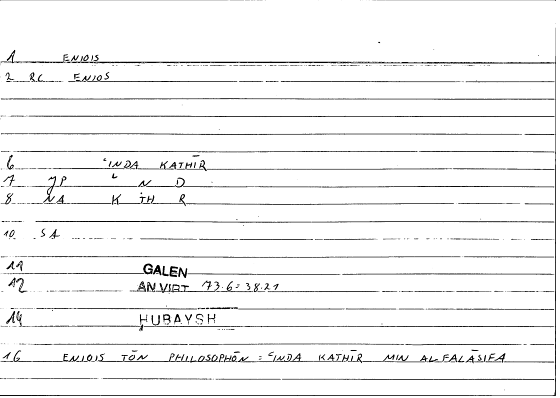 1 ENIOIS
2 RC ENIOS
6 ʿINDA KATHĪR
7 JP ʿ N D
8 NA K TH R
10 SA
11 GALEN
12 AN VIRT 73.6=38.21
14 HUBAYSH
16 ENIOIS TŌN PHILOSOPHŌN = ʿINDA KATHĪR MIN AL FALĀSIFA